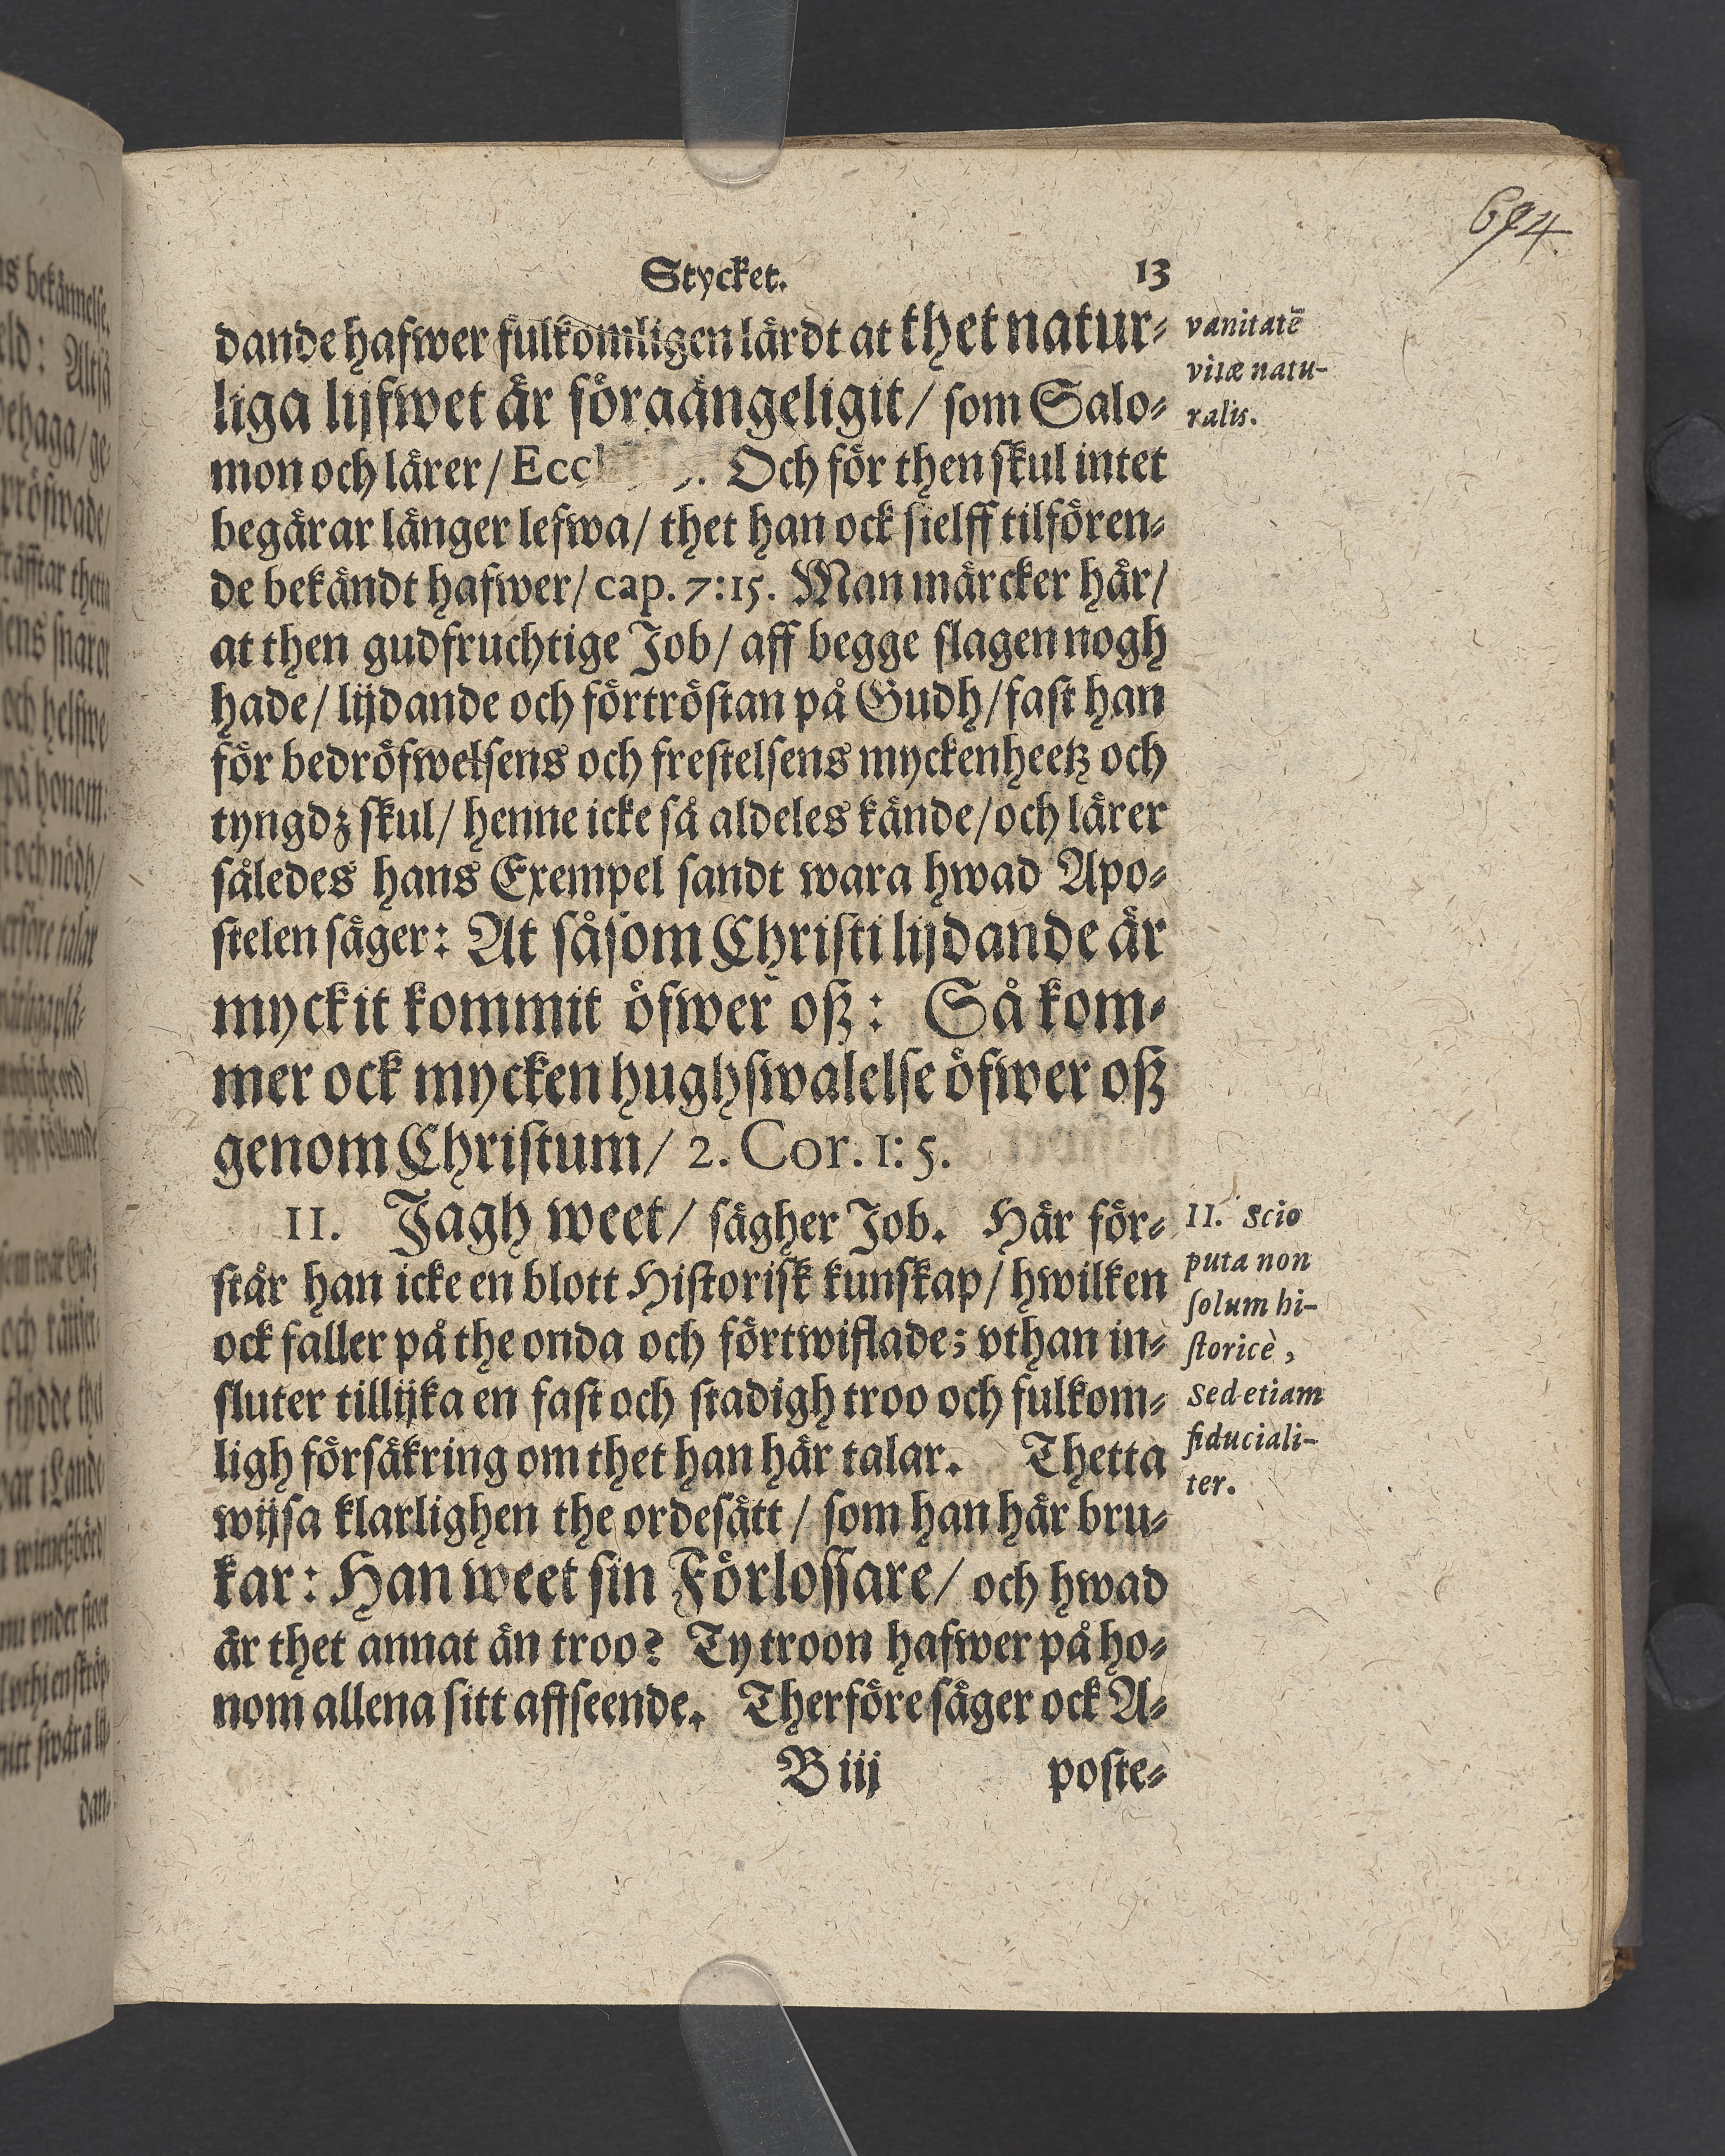 694
Stycket. 13
dande hafwer fulkomligen lärdt at thet natur-
liga lijfwet är förgängeligit/ som Salo-
mon och lärer/ Eccl . Och för then skul intet
begärar länger lefwa/ thet han ock sielff tilfören-
de bekändt hafwer/ cap. 7:15. Man märcker här/
at then gudfruchtige Job/ aff begge slagen nogh
hade/ lijdande och förtröstan på Gudh/ fast han
för bedröfwelsens och frestelsens myckenheetz och
tyngdz skul/ henne icke så aldeles kände/ och lärer
således hans Exempel sandt wara hwad Apo-
stelen säger: At såsom Christi lijdande är
myckit kommit öfwer oß: Så kom-
mer ock mycken hughswalelse öfwer oß
genom Christum/ 2. Cor. 1:5.
II. Jagh weet/ sägher Job. Här för-
står han icke en blott Historisk kunskap/ hwilken
ock faller på the onda och förtwiflade; vthan in-
sluter tillijka en fast och stadigh troo och fulkom-
ligh försäkring om thet han här talar. Thetta
wijsa klarlighen the ordesätt/ som han här bru-
kar: Han weet sin Förlossare/ och hwad
är thet annat än troo? Ty troon hafwer på ho-
nom allena sitt affseende. Therföre säger ock A-
B iij poste-
vanitatē
vitæ natu-
ralis.
II. Scio
puta non
solum hi-
storicè,
Sed etiam
fiduciali-
ter.